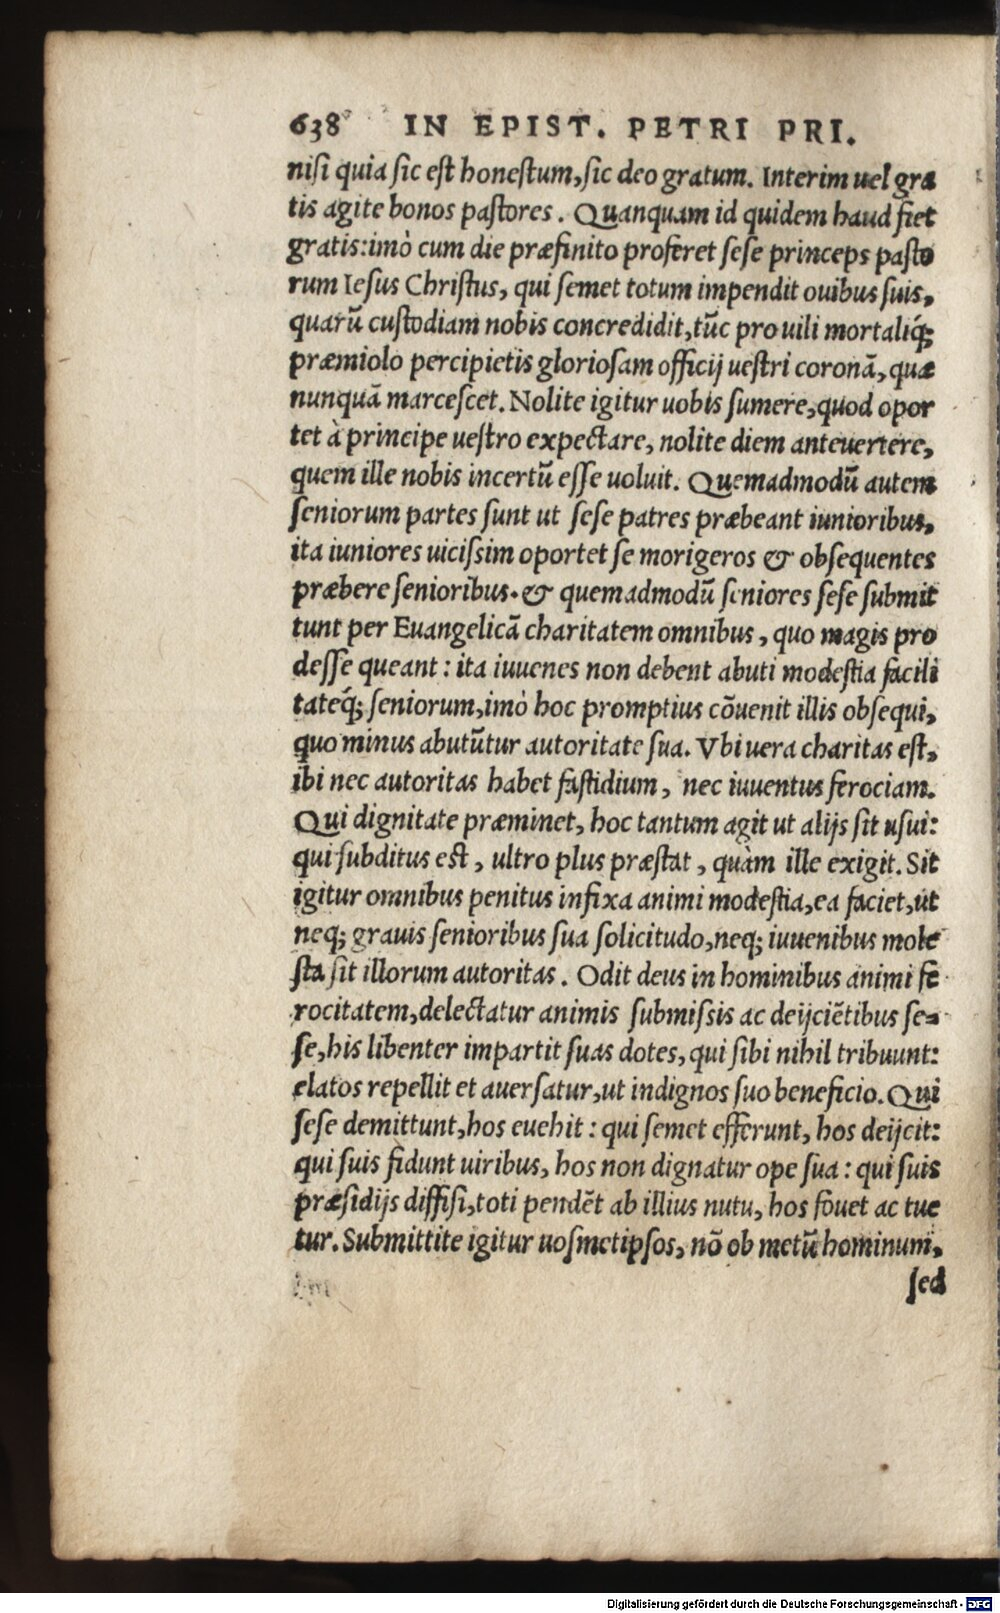 638 IN EPIST. PETRI PRI.
niſi quia ſic eſt honeſtum, ſic deo gratum. Interim uel gra
tis agite bonos paſtores. Quanquam id quidem haud fiet
gratis: imò cum die præfinito proferet ſeſe princeps paſto
rum Ieſus Chriſtus, qui ſemet totum impendit ouibus ſuis,
quarũ cuſtodiam nobis concredidit, tũc pro uili mortaliq́;
præmiolo percipietis glorioſam officij ueſtri coronã, quæ
nunquã marceſcet. Nolite igitur uobis ſumere, quod opor
tet à principe ueſtro expectare, nolite diem anteuertere,
quem ille nobis incertũ eſſe uoluit. Quemadmodũ autem
ſeniorum partes ſunt ut ſeſe patres præbeant iunioribus,
ita iuniores uiciſſim oportet ſe morigeros & obſequentes
præbere ſenioribus. & quemadmodũ ſeniores ſeſe ſubmit
tunt per Euangelicã charitatem omnibus, quo magis pro
deſſe queant: ita iuuenes non debent abuti modeſtia facili
tateq́; ſeniorum, imò hoc promptius cõuenit illis obſequi,
quo minus abutũtur autoritate ſua. Vbi uera charitas eſt,
ibi nec autoritas habet faſtidium, nec iuuentus ferociam.
Qui dignitate præminet, hoc tantum agit ut alijs ſit uſui:
qui ſubditus eſt, ultro plus præſtat, quàm ille exigit. Sit
igitur omnibus penitus infixa animi modeſtia, ea faciet, ut
neq; grauis ſenioribus ſua ſolicitudo, neq; iuuenibus mole
ſta ſit illorum autoritas. Odit deus in hominibus animi fe
rocitatem, delectatur animis ſubmiſſis ac deijciẽtibus ſe-
ſe, his libenter impartit ſuas dotes, qui ſibi nihil tribuunt:
elatos repellit et auerſatur, ut indignos ſuo beneficio. Qui
ſeſe demittunt, hos euehit: qui ſemet efferunt, hos deijcit:
qui ſuis fidunt uiribus, hos non dignatur ope ſua: qui ſuis
præſidijs diffiſi, toti pendẽt ab illius nutu, hos fouet ac tue
tur. Submittite igitur uoſmetipſos, nõ ob metũ hominum,
ſed
Digitalisierung gefördert durch die Deutsche Forschungsgemeinschaft - DFG